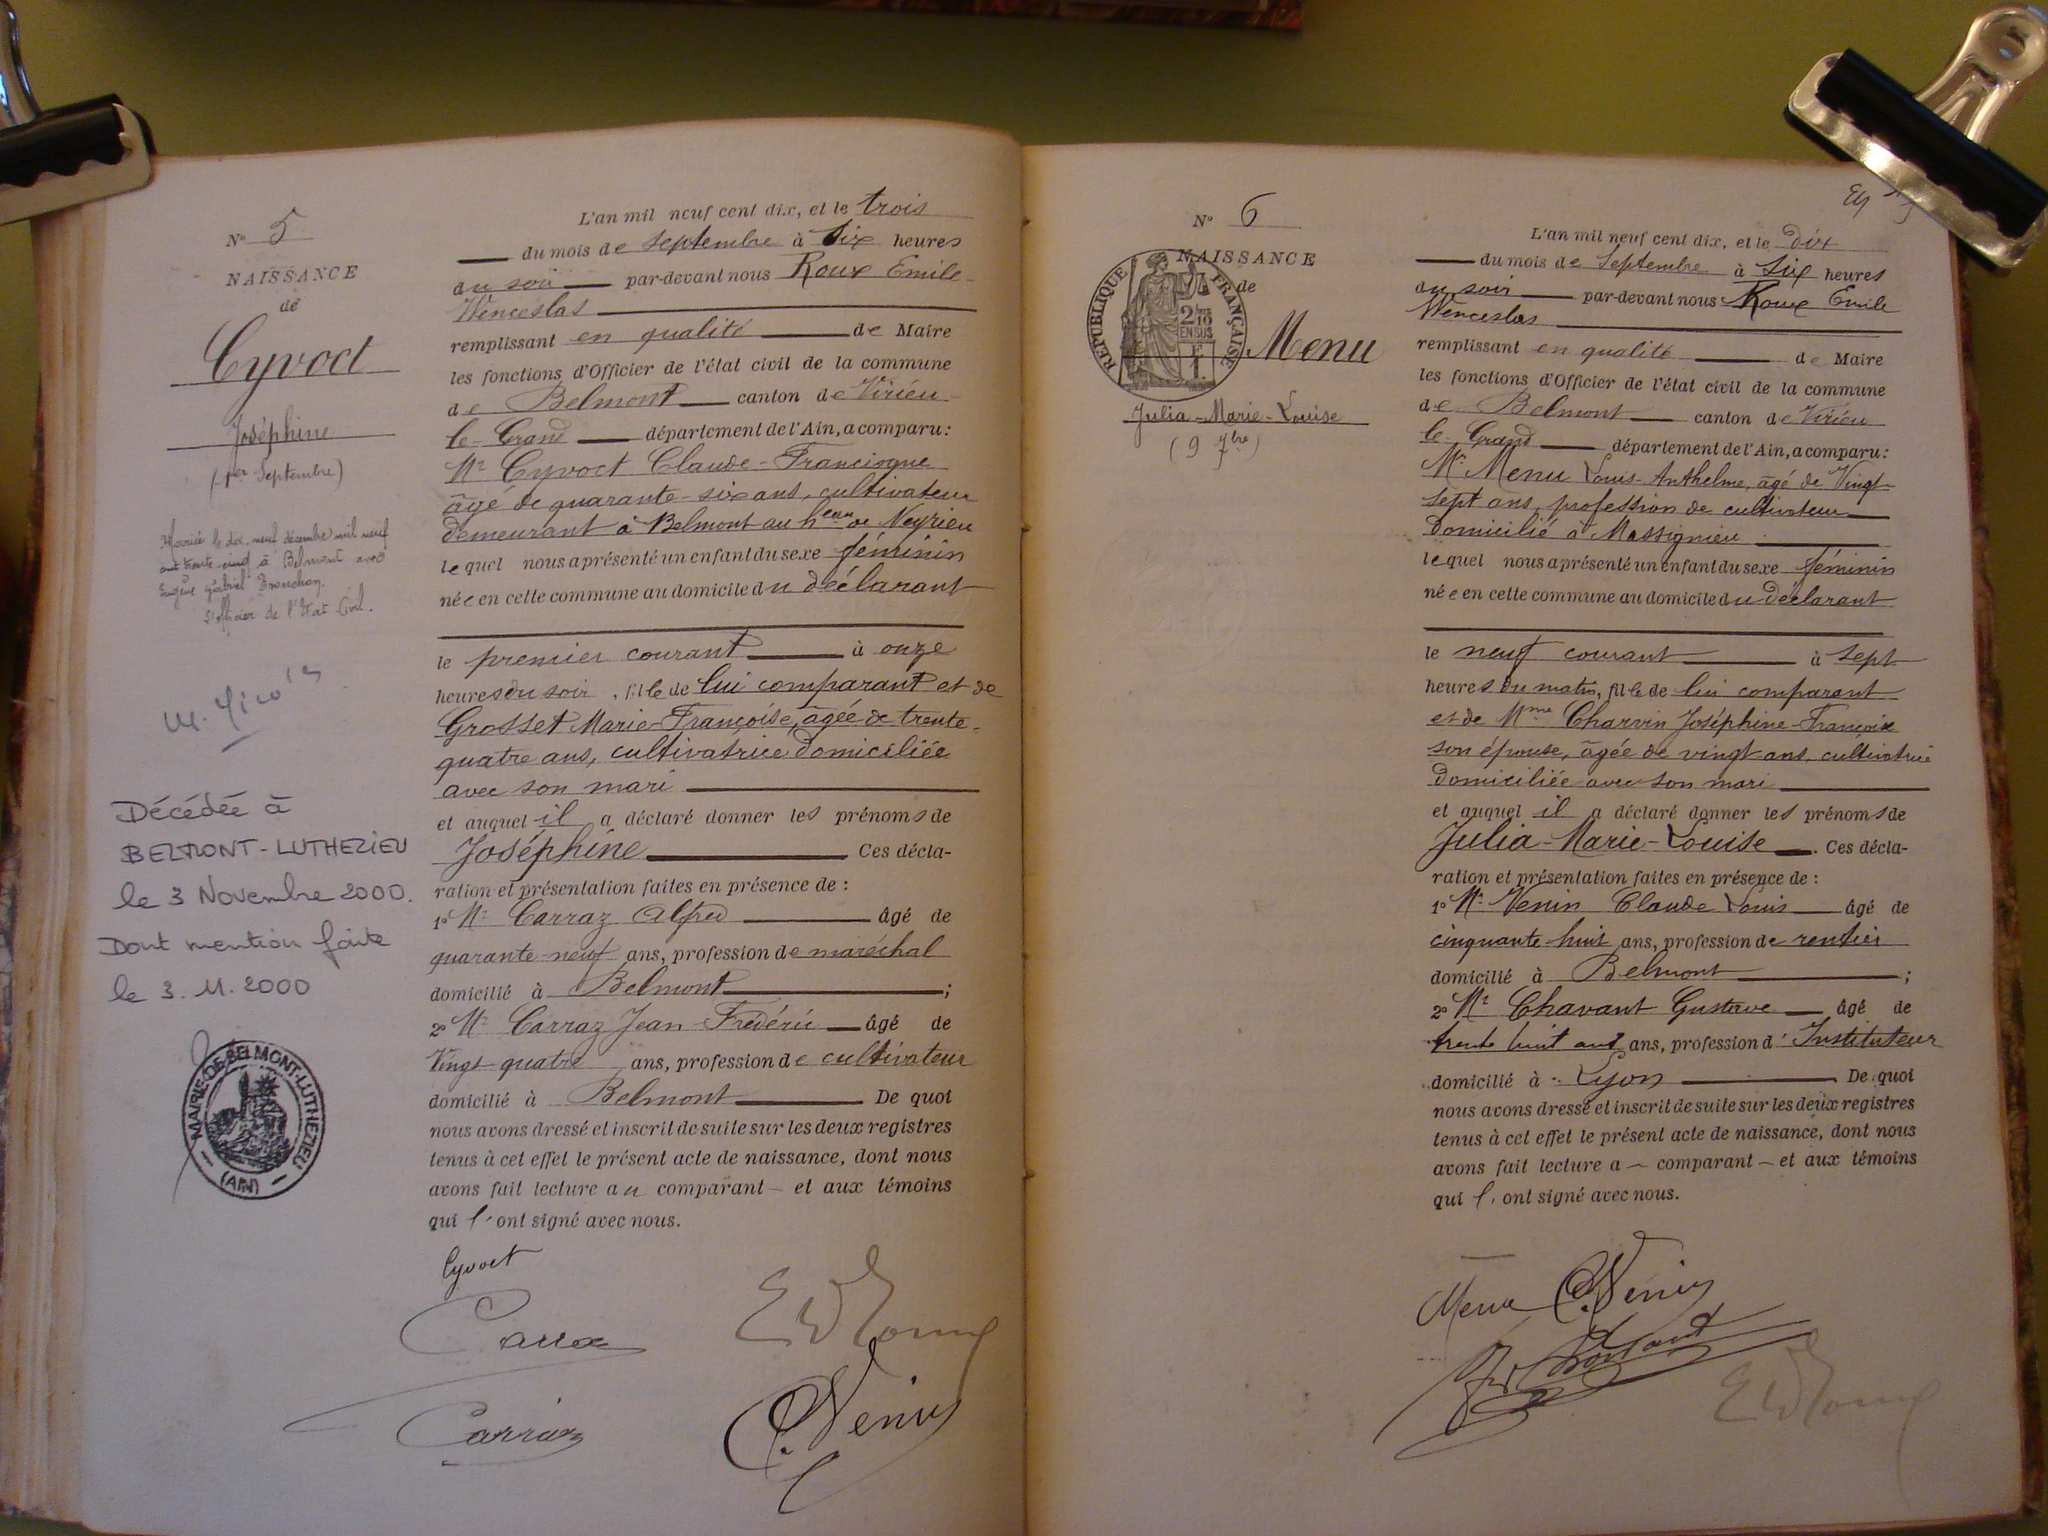 N° 5
NAISSANCE
de
Cyvoct
Joséphine
(1er Septembre)
Mariée le dix-neuf décembre mil neuf
cent trente cinq à Belmont avec
Eugène Gabriel
L'officier de l'Etat Civil.
Décédée à
BELMONT-LUTHEZIEU
le 3 Novembre 2000.
Dont mention faite
le 3. 11. 2000
MAIRIE DE BELMONT-LUTHEZIEU
(AIN)
L'an mil neuf cent dix, et le trois
du mois de Septembre à Six heures
du soir par-devant nous Roux Emile
Wenceslas
remplissant en qualité de Maire
les fonctions d'Officier de l'état civil de la commune
de Belmont canton de Virieu
le-Grand département de l'Ain, a comparu:
Mr Cyvoct Claude-Francisque
âgé de quarante-six ans, cultivateur
demeurant à Belmont au heau de Neyrieu
lequel nous a présenté un enfant du sexe féminin
née en cette commune au domicile du déclarant
le premier courant à onze
heures du soir, fille de lui comparant et de
Grosset Marie-Françoise, âgée de trente-
quatre ans, cultivatrice domiciliée
avec son mari
et auquel il a déclaré donner les prénoms de
Joséphine Ces décla-
ration et présentation faites en présence de :
1° Mr Carraz Alfred âgé de
quarante-neuf ans, profession de maréchal
domicilié à Belmont ;
2° Mr Carraz Jean-Frédéric âgé de
Vingt quatre ans, profession de cultivateur
domicilié à Belmont De quoi
nous avons dressé et inscrit de suite sur les deux registres
tenus à cet effet le présent acte de naissance, dont nous
avons fait lecture au comparant – et aux témoins
qui l'ont signé avec nous.
Cyvoct
Carraz
Carraz
C. Vénin
N° 6
NAISSANCE
de
RÉPUBLIQUE FRANÇAISE
2/10
EN SUS
Menu
Julia-Marie-Louise
(9 7bre)
L'an mil neuf cent dix, et le dix
du mois de Septembre à Six heures
du soir par-devant nous Roux Emile
Wenceslas
remplissant en qualité de Maire
les fonctions d'Officier de l'état civil de la commune
de Belmont canton de Virieu
le Grand département de l'Ain, a comparu:
Mr Menu Louis-Anthelme, âgé de Vingt-
sept ans, profession de cultivateur
domicilié à Massignieu
lequel nous a présenté un enfant du sexe féminin
née en cette commune au domicile du déclarant
le neuf courant à sept
heures du matin, fille de lui comparant
et de Mme Charvin Joséphine-Françoise
son épouse, âgée de vingt ans, cultivatrice
domiciliée avec son mari
et auquel il a déclaré donner les prénoms de
Julia-Marie-Louise. Ces décla-
ration et présentation faites en présence de :
1° Mr Venin Claude Louis âgé de
cinquante-huit ans, profession de rentier
domicilié à Belmont ;
2° Mr Chavant Gustave âgé de
trente huit ans ans, profession d'Instituteur
domicilié à Lyon De quoi
nous avons dressé et inscrit de suite sur les deux registres
tenus à cet effet le présent acte de naissance, dont nous
avons fait lecture a – comparant – et aux témoins
qui l'ont signé avec nous.
Menu C. Vénin